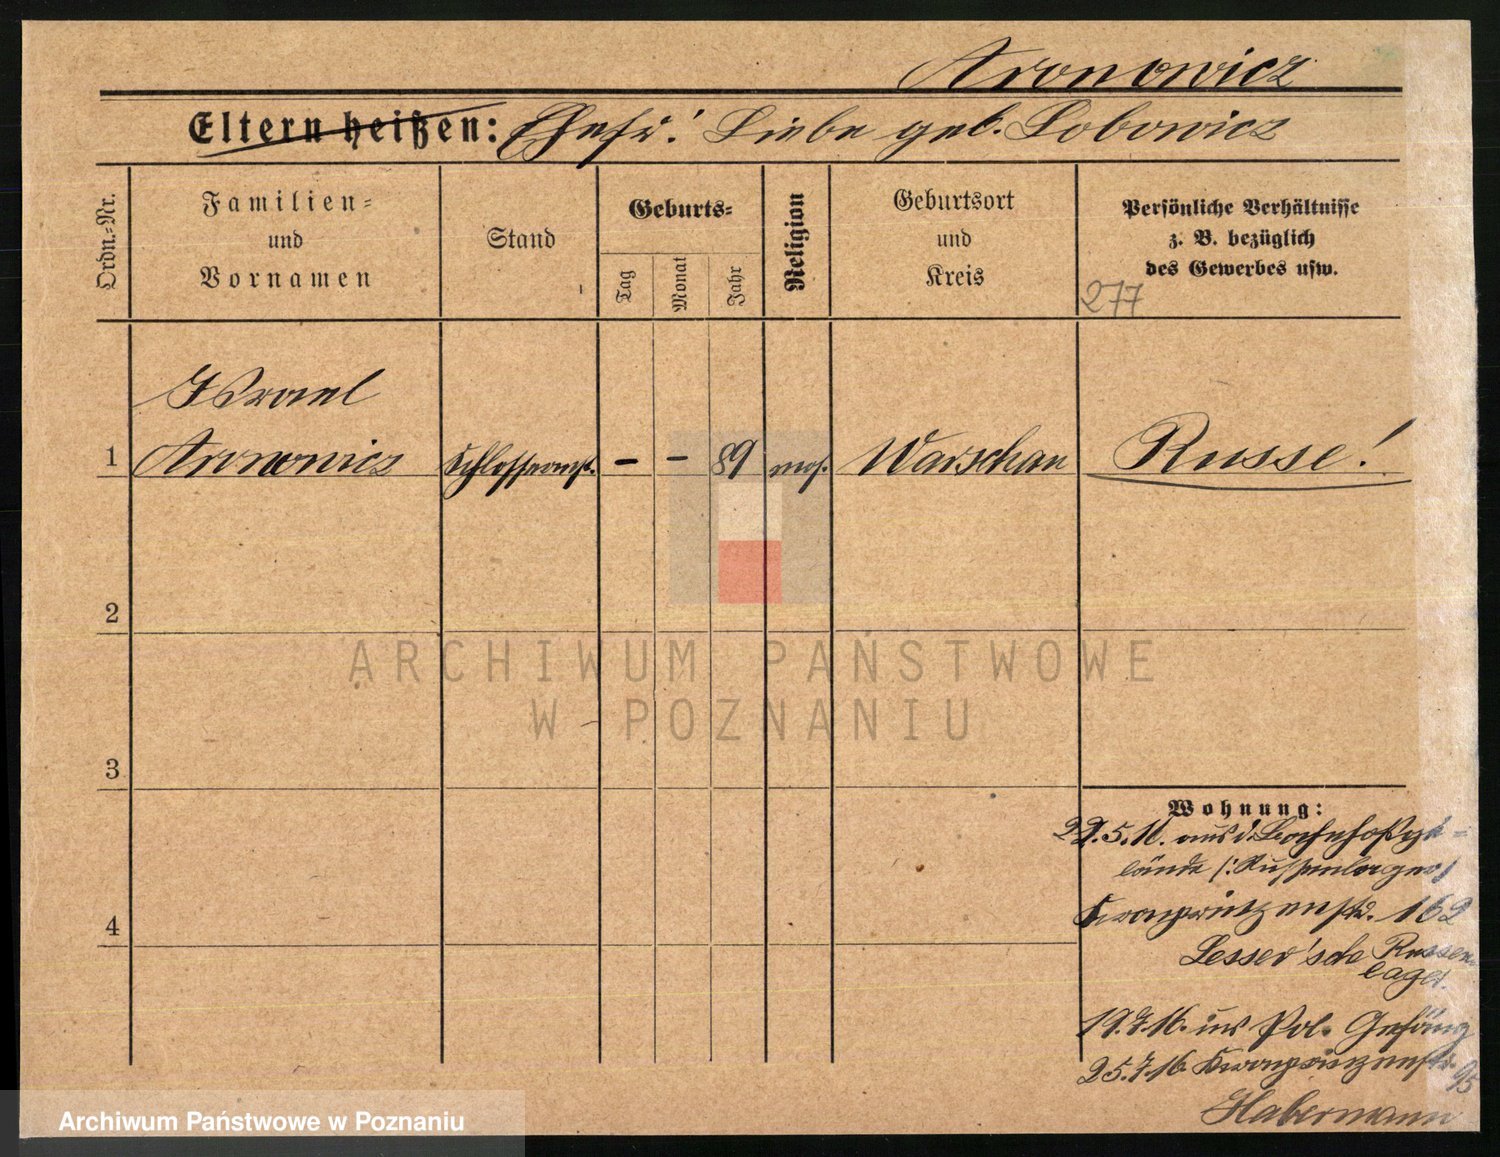 Aronowicz
Eltern heißen: Ehefr: Liebe geb. Lobowicz
Ordn.-Nr.
Familien-
und
Vornamen
Stand
Geburts-
Tag
Monat
Jahr
Religion
Geburtsort
und
Kreis
Persönliche Verhältnisse
z. B. bezüglich
des Gewerbes usw.
277
Israel
1 Aronowicz Schlossermst. - - 89 mos. Warschau Russe!
2
3
4
Wohnung:
22.5.16. aus d. Bahnhofsge-
lände /: Russenlager /
Kronprinzenstr. 162
Lesser'sche Russen
lager.
19.7.16. ins Pol. Gefäng
25.7.16 Kronprinzenstr. 95
Habermann
ARCHIWUM PAŃSTWOWE
W POZNANIU
Archiwum Państwowe w Poznaniu